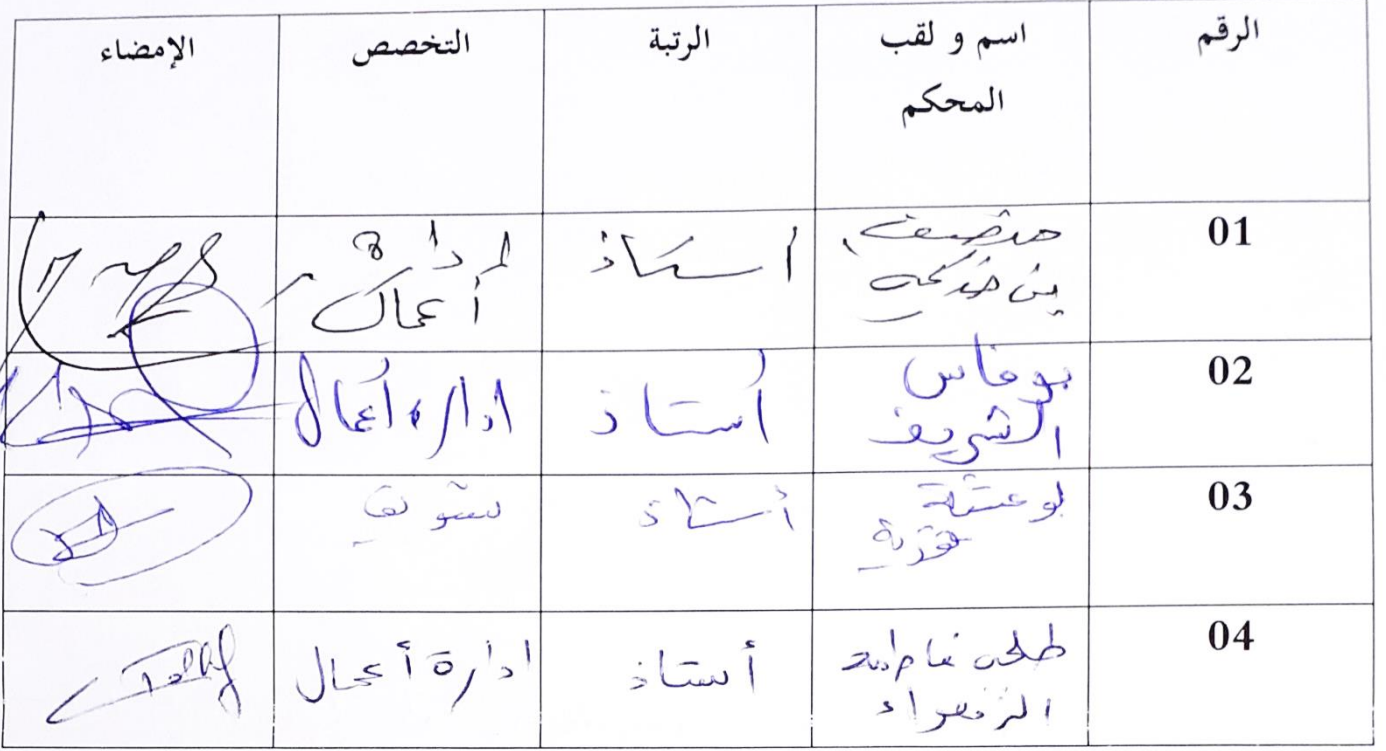 الرقم
اسم و لقب
المحكم
الرتبة
التخصص
الإمضاء
01
بن خديجة
أستاذ
إدارة
أعمال
02
بوفاس
الشريف
أستاذ
ادارة أعمال
03
أستاذ
تسويق
04
طلحي فاطمة
الزهراء
أستاذ
ادارة أعمال